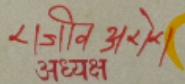 राजीव अरोरा
अध्यक्ष